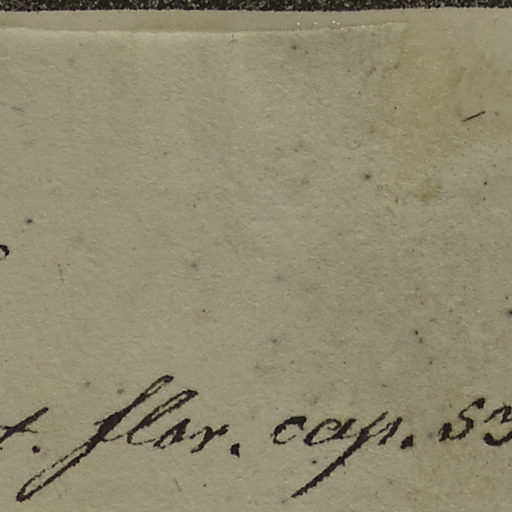 t. flor. cap. 53